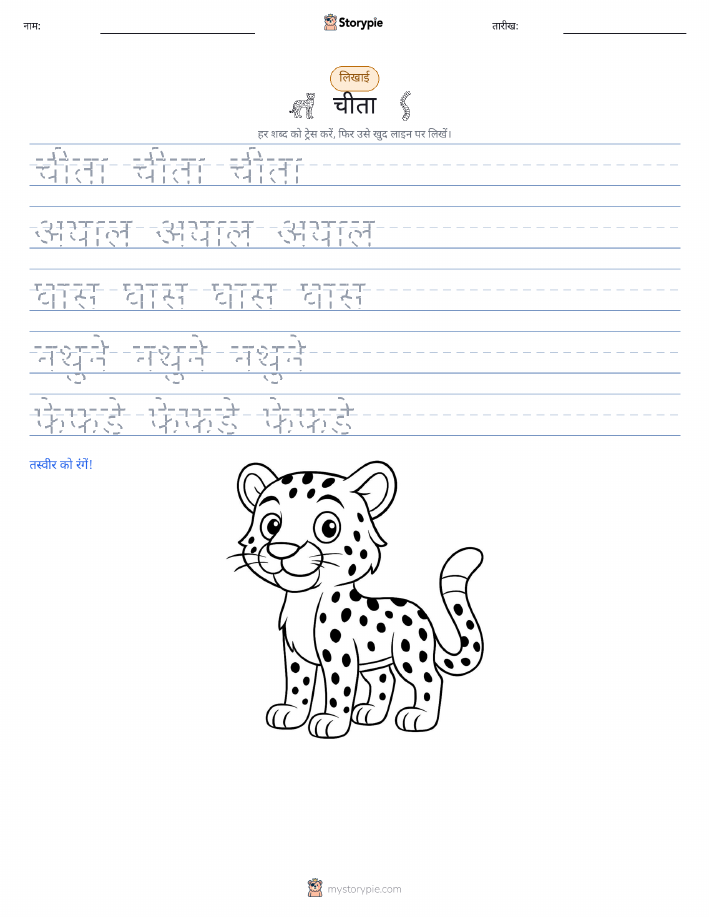 नाम:
Storypie
तारीख:
लिखाई
चीता
हर शब्द को ट्रेस करें, फिर उसे खुद लाइन पर लिखें।
चीता चीता चीता
अयाल अयाल अयाल
घास घास घास घास
नथुने नथुने नथुने
फेफड़े फेफड़े फेफड़े
तस्वीर को रंगें!
mystorypie.com